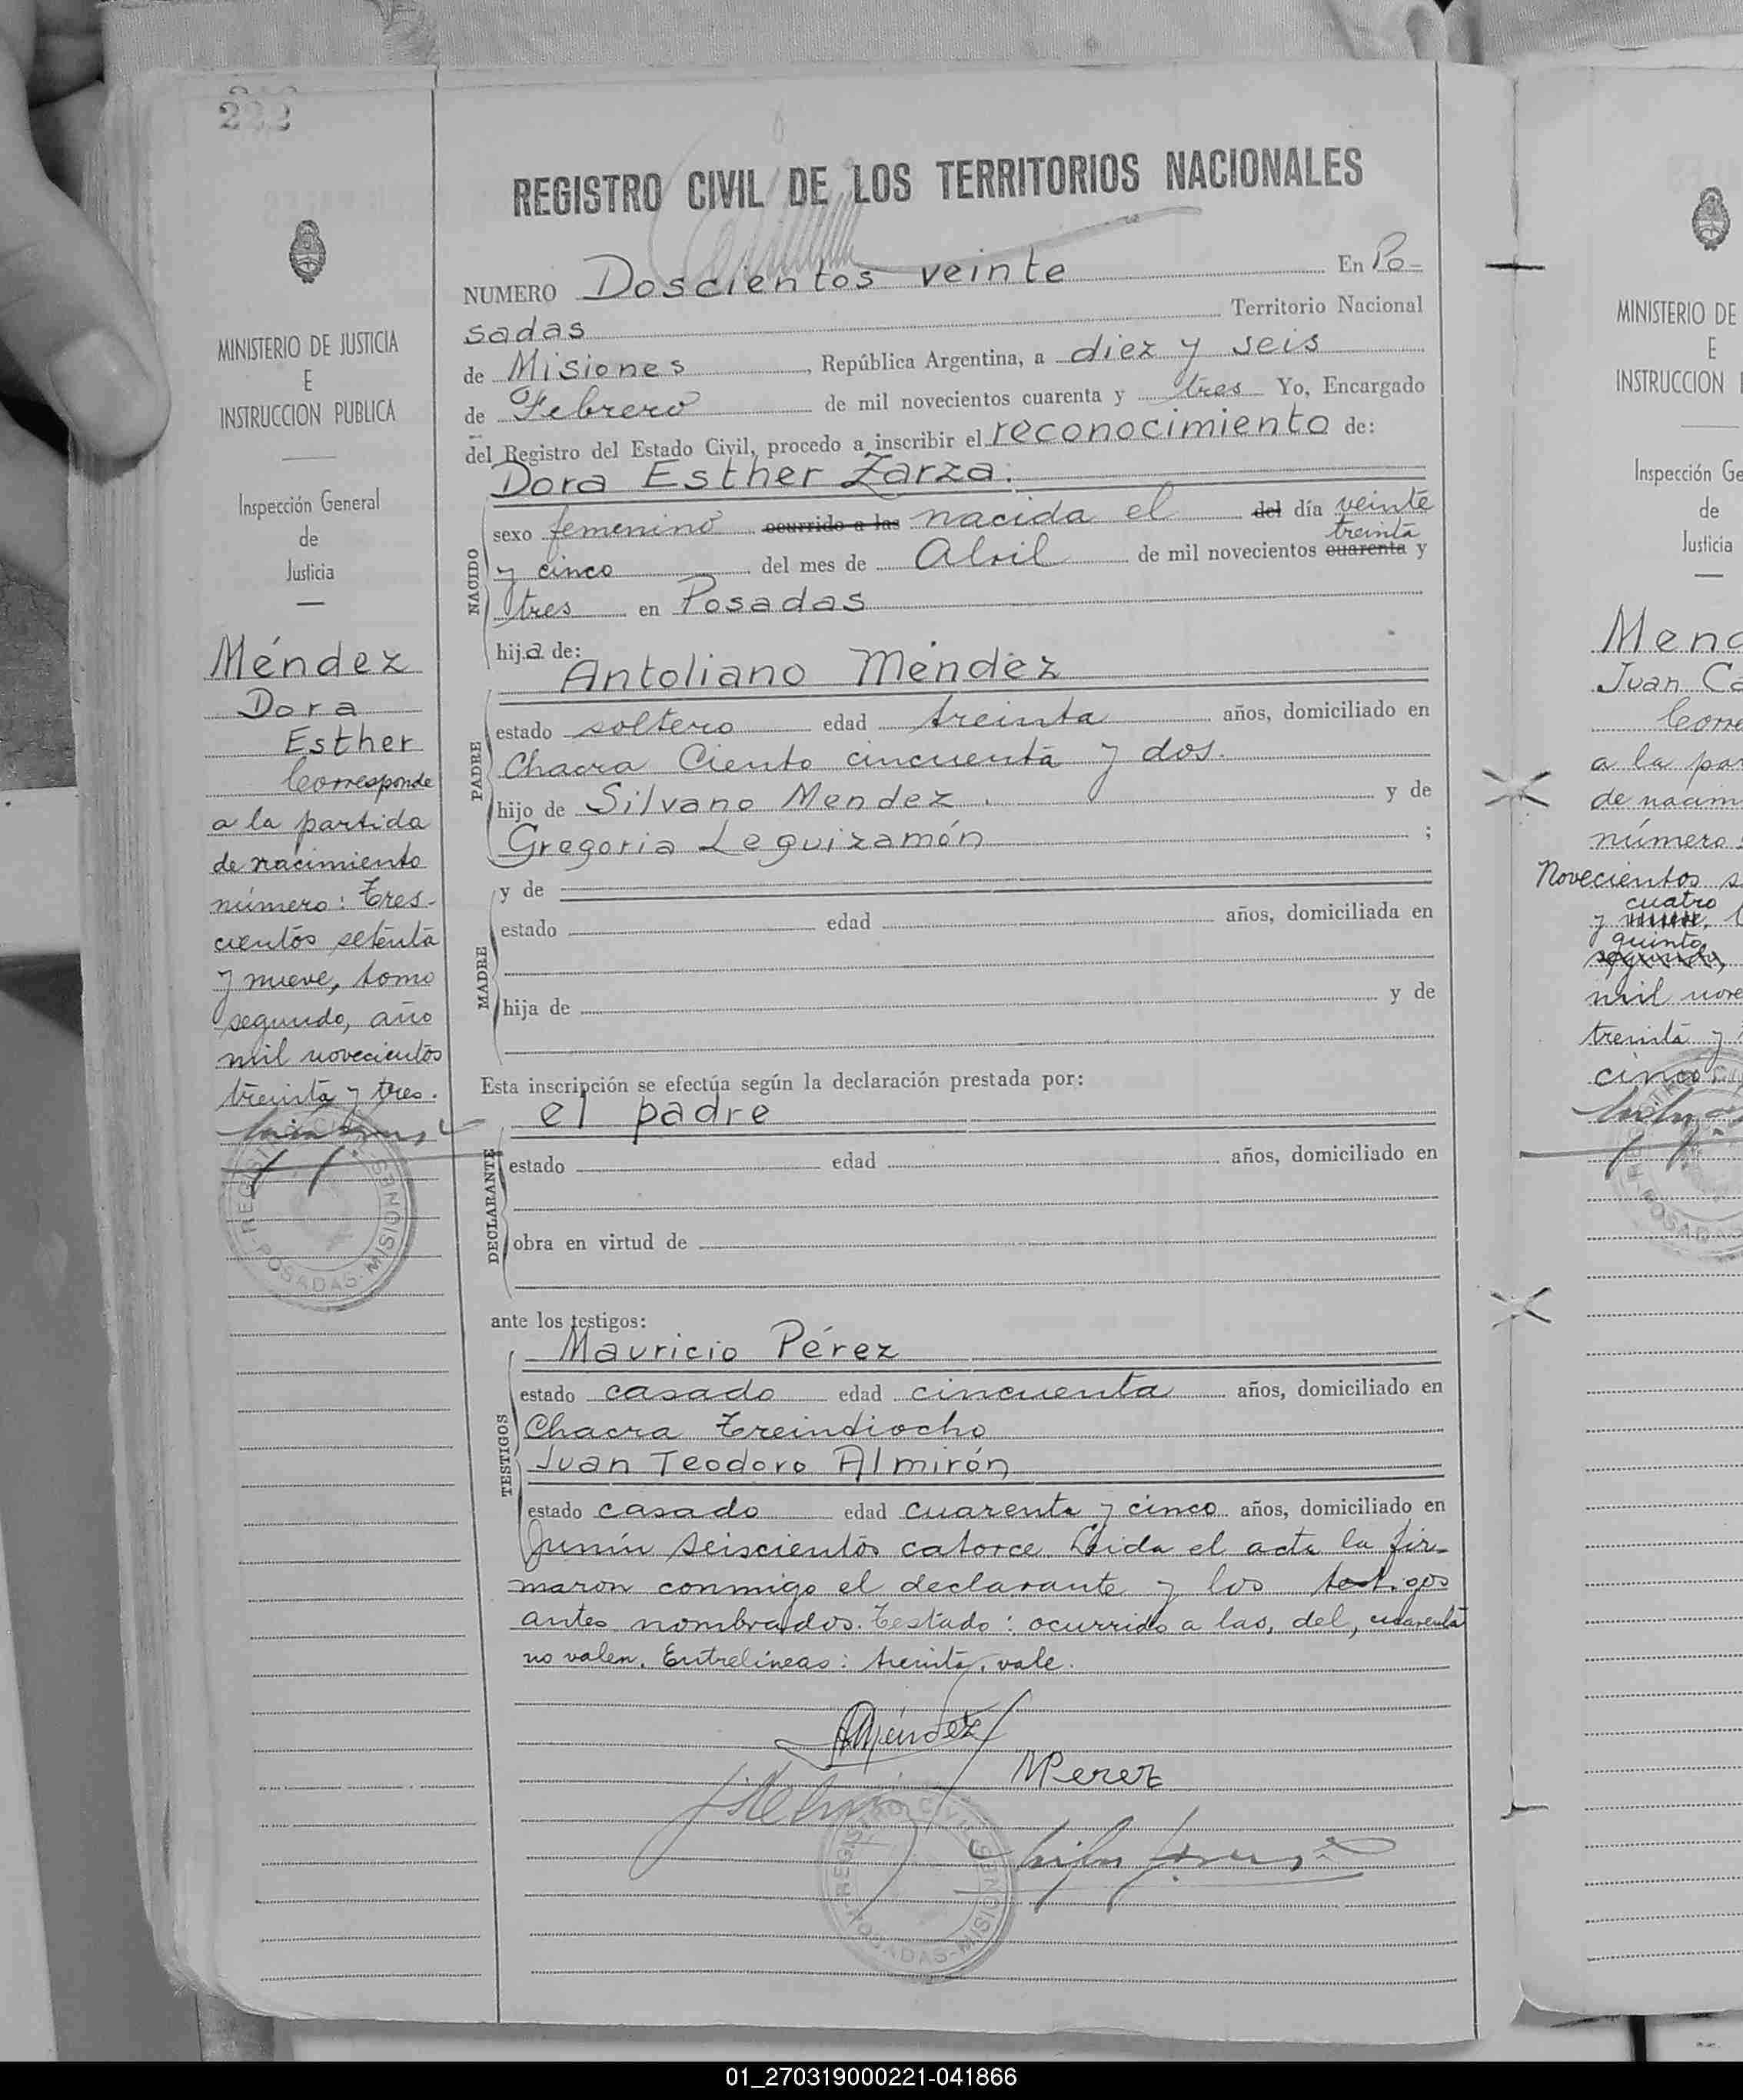 222
REGISTRO CIVIL DE LOS TERRITORIOS NACIONALES
NUMERO Doscientos veinte En Po-
sadas Territorio Nacional
de Misiones, República Argentina, a diez y seis
de Febrero de mil novecientos cuarenta y tres Yo, Encargado
del Registro del Estado Civil, procedo a inscribir el reconocimiento de:
Dora Esther Zarza.
NACIDO
sexo femenino ocurrido a las nacida el del día veinte
treinta
y cinco del mes de Abril de mil novecientos cuarenta y
tres en Posadas
hija de:
Antoliano Méndez
PADRE
estado soltero edad treinta años, domiciliado en
Chacra Ciento cincuenta y dos.
hijo de Silvano Mendez. y de
Gregoria Leguizamón ;
MADRE
y de
estado edad años, domiciliada en
hija de y de
Esta inscripción se efectúa según la declaración prestada por:
el padre
DECLARANTE
estado edad años, domiciliado en
obra en virtud de
ante los testigos:
Mauricio Pérez
TESTIGOS
estado casado edad cincuenta años, domiciliado en
Chacra Treintiocho
Juan Teodoro Almirón
estado casado edad cuarenta y cinco años, domiciliado en
Junín seiscientos catorce. Leida el acta la fir-
maron conmigo el declarante y los testigos
antes nombrados. Testado: ocurrido a las, del, cuarenta
no valen. Entrelíneas: treinta, vale.
AMéndez
MPerez
REGISTRO CIVIL
POSADAS-MISIONES
MINISTERIO DE JUSTICIA
E
INSTRUCCION PUBLICA
Inspección General
de
Justicia
Méndez
Dora
Esther
Corresponde
a la partida
de nacimiento
número: Tres-
cientos setenta
y nueve, tomo
segundo, año
mil novecientos
treinta y tres.
REGISTRO CIVIL
POSADAS-MISIONES
MINISTERIO DE
E
INSTRUCCION
Inspección Ge
de
Justicia
Mend
Juan Ca
Corre
a la par
de nacim
número
Novecientos s
cuatro
y
quinto
segundo,
mil nove
treinta y
cinco
POSADAS
01_270319000221-041866